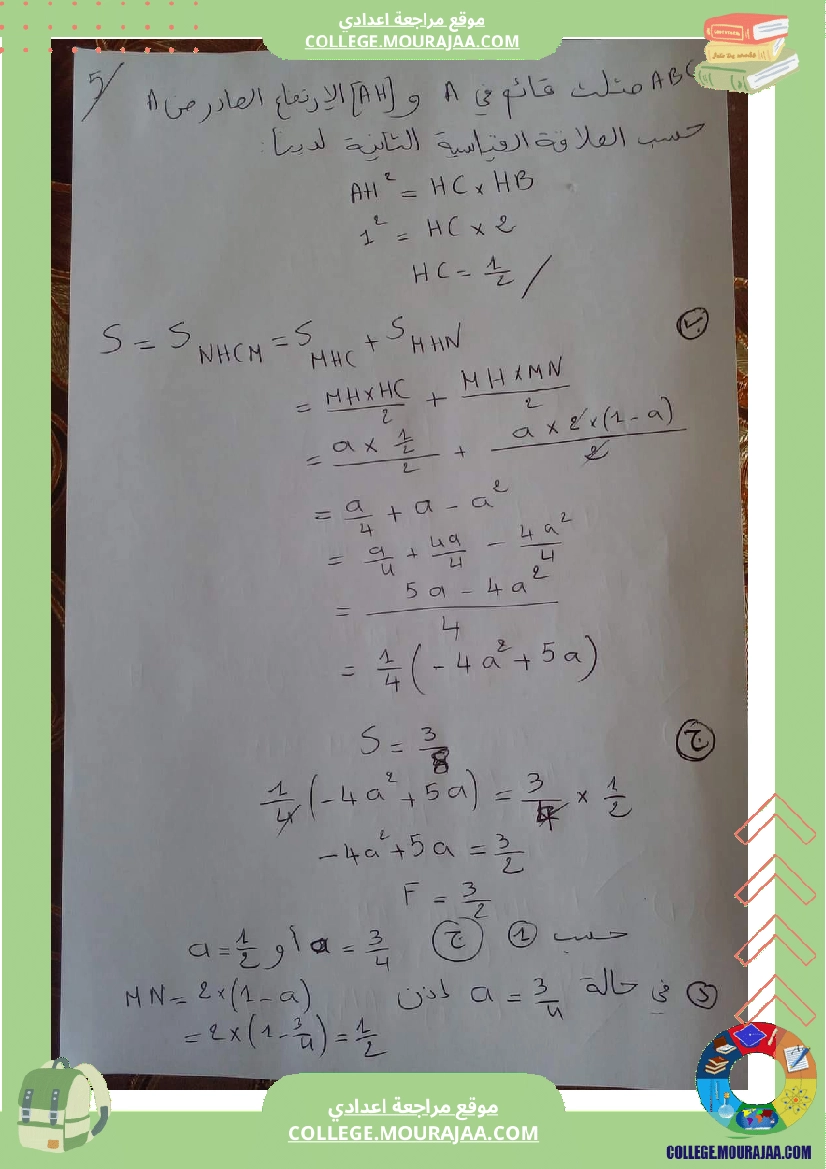 موقع مراجعة اعدادي
COLLEGE.MOURAJAA.COM
5/
ABC مثلث قائم في A و [AH] الإرتفاع الصادر من A
حسب العلاقة القياسية الثانية لدينا:
AH² = HC × HB
1² = HC × 2
HC = 1/2 /
ب
S = S NHCM = S MHC + S MHN
= MH×HC/2 + MH×MN/2
= a × 1/2 / 2 + a × 2 × (1 - a) / 2
= a/4 + a - a²
= a/4 + 4a/4 - 4a²/4
= 5a - 4a² / 4
= 1/4 (- 4a² + 5a)
ج
S = 3/8
1/4 (- 4a² + 5a) = 3/4 × 1/2
- 4a² + 5a = 3/2
F = 3/2
حسب 1 ج a = 3/4 أو a = 1/2
د في حالة a = 3/4 اذن MN = 2×(1 - a)
= 2×(1 - 3/4) = 1/2
موقع مراجعة اعدادي
COLLEGE.MOURAJAA.COM
COLLEGE.MOURAJAA.COM